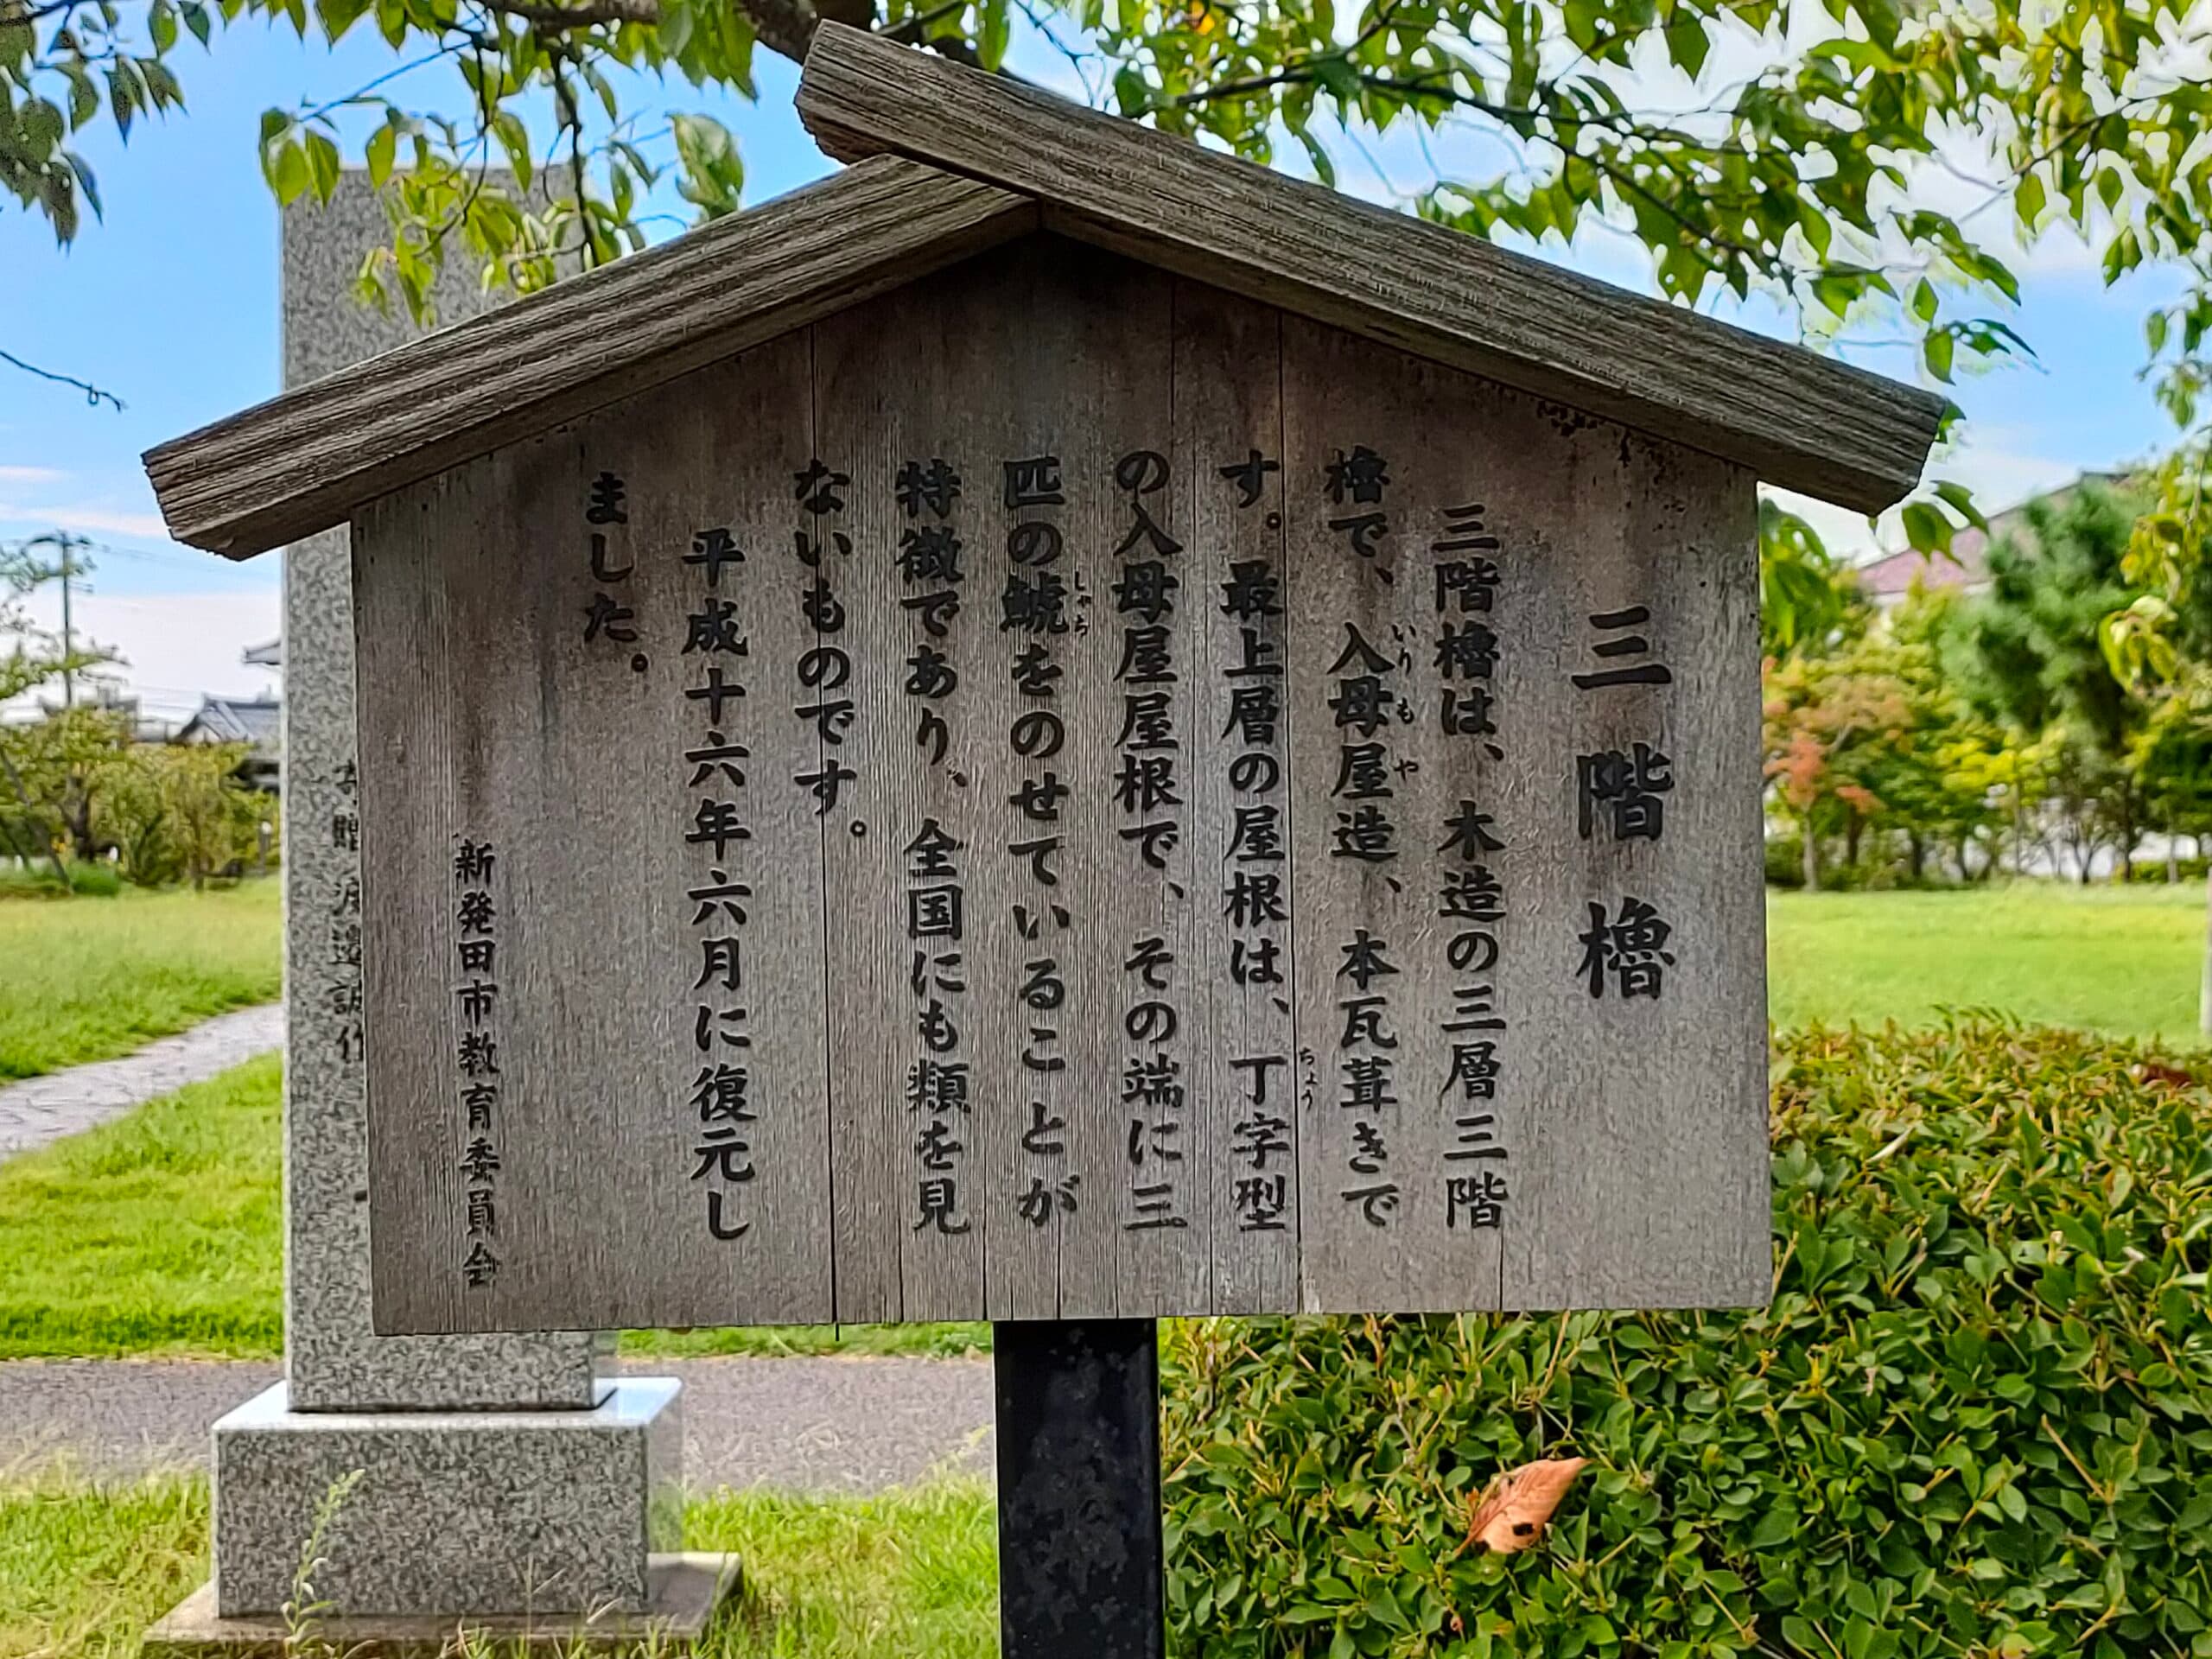 三階櫓
三階櫓は、木造の三層三階
櫓で、入母屋造、本瓦葺きで
いりもや
す。最上層の屋根は、丁字型
ちょう
の入母屋屋根で、その端に三
匹の鯱をのせていることが
しゃち
特徴であり、全国にも類を見
ないものです。
平成十六年六月に復元し
ました。
新発田市教育委員会